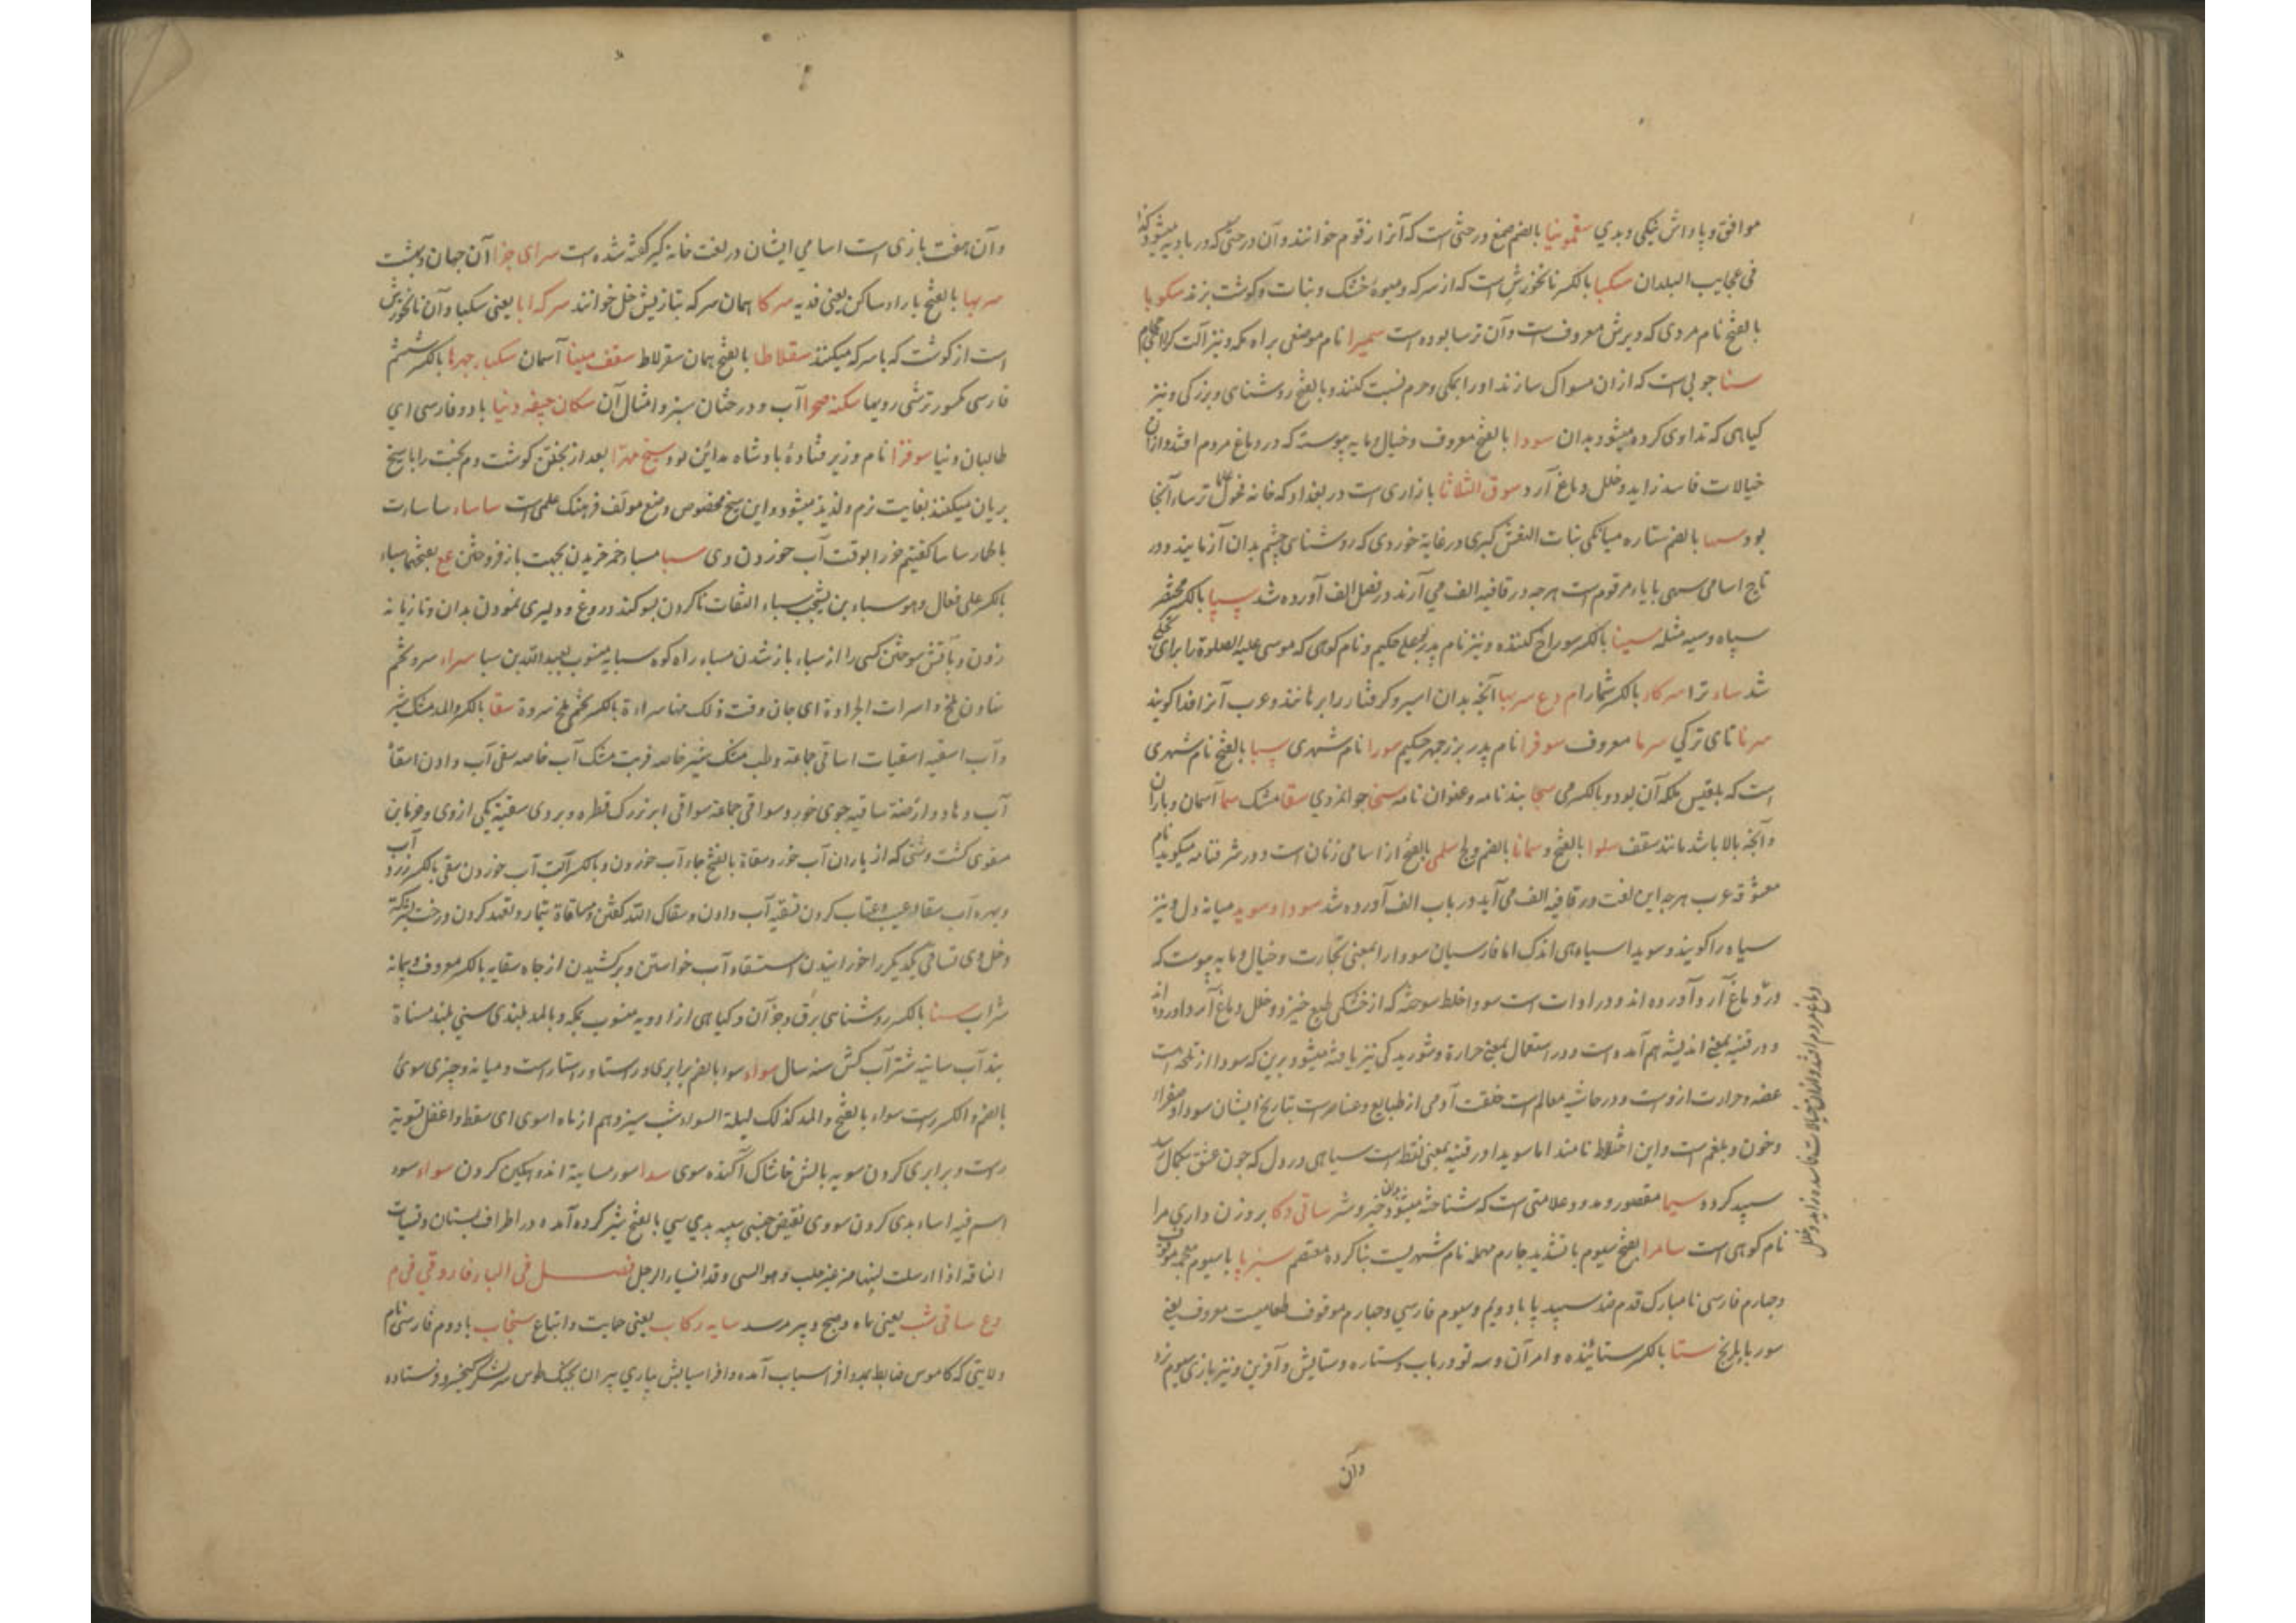 موافق و پاداش نیکی و بدی سقمونیا بالضم صمغ درختی است که آنرا زقوم خوانند و آن درختی که در بادیه میشود
فی عجایب البلدان سکبا بالکسر نانخورش است که از سرکه و میوهٔ خشک و نبات و گوشت پزند سکوبا
بالفتح نام مردی که دیرش معروفست و آن ترسا بوده است سمیرا نام موضعی براه مکه و نیز آلت
سنا چوبی است که ازان مسواک سازند و او را بمکی و حرم نسبت کنند و بالفتح روشنای و بزرگی و نیز
گیاهی که تداوی کرده میشود بدان سودا بالفتح معروف و خیال و مایه پیوسته که در دماغ مردم افتد و ازان
خیالات فاسد زاید و خلل دماغ آرد سوق الثلاثا بازاری است در بغداد که خانه ترساء آنجا
بود سها بالضم ستاره میانگی بنات النعش کبری در غایة خوردی که روشنای چشم بدان آزمایند و در
تاج اسامی سهی بایاء مرقوم است هرچه در قافیه الف می آرند در فصل الف آورده شد سپا بالکسر مختصر
سیاه و سیه مثله سینا بالکسر سوراخ کننده و نیز نام پدر بوعلی حکیم و نام کوهی که موسی علیه الصلوة را برای تجلی
شد ساء ترا سرکار بالکسر شمارا م دع سربها آنچه بدان اسیر و گرفتار را برهانند و عرب آنرا فدا گویند
سرنا نای ترکی سرما معروف سوفرا نام پدر بزرجمهر حکیم سورا نام شهری سبا بالفتح نام شهری
است که بلقیس ملکه آن بود و بالکسر می سحا بند نامه و عنوان نامه سخا جوانمردی سقا مشک سما آسمان و باران
و آنچه بالا باشد مانند سقف سلوا بالفتح و سمانا بالضم ولج سلمی بالفتح از اسامی زنان است و در شرفنامه میگوید نام
معشوقه عرب هرچه این لغت در قافیه الف می آید در باب الف آورده شد سودا و سوید میانه دل و نیز
سیاه را گویند و سویدا سیاهی اندک اما فارسیان سودا را بمعنی تجارت و خیال و مایه پیوست که
در دماغ آرد آورده اند و در ادات است سودا خلط سوخته که از خشکی طبع خیزد و خلل دماغ آرد و آورده اند
و در قنیه بمعنی اندیشه هم آمده است و در استعمال بمعنی حرارة و شوریدگی نیز یافته میشود برین که سودا از تلخه است
غصه و حرارت ازوست و در حاشیه معالم است خلقت آدمی از طبایع و عناصر است بتاریخ ایشان سودا و صفرا
و خون و بلغم است و این اختلاط نامند اما سویدا در قنیه بمعنی نقطه است سیاهی در دل که چون عشق بکمال رسد
سپید گردد سیما مقصور و ممدود علامتی است که شناخته میشود بدان خیر و شر ساقی دکا بروزن داری مرا
نام کوهی است سامرا بفتح سیوم با تشدید چارم مهمله نام شهریست بنا کرده معتصم سبزپا با سیوم معجمه موقوف
و چهارم فارسی نامبارک قدم ضد سپید پا با دویم و سیوم فارسی و چهارم موقوف طعامیست معروف یعنی
سوربا بلرنج ستا بالکسر ستاینده و امر آن و سه تو در باب و ستاره و ستایش و آفرین و نیز بازی سیوم نرد
دماغ مردم افتد و ازان خیالات فاسده زاید و خلل
وآن
وآن هفت بازی است اسامی ایشان در لغت خانه گیر گفته شده است سرای جزا آن جهان و بهشت
سربها بالفتح با راء ساکن یعنی فدیه سرکا همان سرکه بتازیش خل خوانند سرکه ابا یعنی سکبا و آن نانخورش
است از گوشت که با سرکه میکنند سقلاطا بالفتح همان سقرلاط سقف مینا آسمان سکبا چهرها بالکسر ششم
فارسی مکسور ترشی رویها سکنه صحرا آب و درختان سبز و امثال آن سکان جیفه دنیا با دو فارسی ای
طالبان دنیا سوفزا نام وزیر فتاده پادشاه مداین بود سیخ مهترا بعد از پختن گوشت دم پخت را با سیخ
بریان میکنند بغایت نرم و لذیذ میشود و این سیخ مخصوص وضع مولف فرهنگ علمی است ساساء ساسات
بالحمار ساسا گفتیم خر را بوقت آب خوردن وی سبا مسباء خمر خریدن بجهت باز فروختن عع بفتحها سباء
بالکسر علی فعال و هو سباء بن یشجب سباء التفات ناکردن بسوگند دروغ و دلیری نمودن بدان و تازیانه
زدن و بآتش سوختن کسی را از سباء باز شدن مسباء راه کوه سبایه منسوب بعبد الله بن سبا سراء سرو تخم
نهادن ملخ و اسرات الجرادة ای حان وقت ذلک منها سراءة بالکسر تخم ملخ سروة سقا بالکسر والمد مشک شیر
و آب اسقیه اسقیات اساقی جماعة وطب مشک شیر خاصه قربت مشک آب خاصه سقی آب دادن اسقا
آب دهاد و ارضنة ساقیه جوی خورد سواقی جماعة سواقی ابر بزرگ قطره و بردی سقیة یکی از وی و خرمابن
مسقوی کشت دشتی که از باران آب خورد مسقاة بالفتح جاء آب خوردن و بالکسر آلت آب خوردن سقی بالکسر زرد آب
و بهره آب سقاء و عیب و عتاب کردن تسقیه آب دادن و سقاک الله گفتن و مساقاة تیمار و تعهد کردن درخت
دخل وی تساقی یکدیگر را خورانیدن استسقاء آب خواستن و برکشیدن از چاه سقایه بالکسر معروف و پیمانه
شراب سنا بالکسر روشنای برق و جز آن و گیاهی از ادویه منسوب بمکه و بالمد بلندی سنی بلند مسناة
بند آب سانیه شتر آب کش سنه سال سواء سوا بالضم برابری و راستا و راستاراست و میانه و چیزی سوی
بالضم و الکسر راست سواء بالفتح والمد کذلک لیلة السواء شب سیزدهم از ماه اسوی ای سقط و اغفل تسویة
راست و برابری کردن سویه بالش خاشاک آگنده سوی سدا سور مسایة اندوهگین کردن سواء سوء
اسم فیه اساء بدی کردن سووی نقیض حسنی سیه بدی سی بالفتح شیر گرد آمده در اطراف پستان و نسیات
الناقة اذا ارسلت لبنها من غیر حلب و هو السی و قد انسیا الرجل فصل فی الباء فارقی فی م
دع ساقی شب یعنی ماه و صبح و پیر مرسد سایه رکاب یعنی حمایت و اتباع سنجاب با دوم فارسی نام
ولایتی که کاموس ضابط بود و افراسیاب آمده و افراسیابش بیاری پیران بجنگ طوس سر لشکر کیخسرو فرستاده